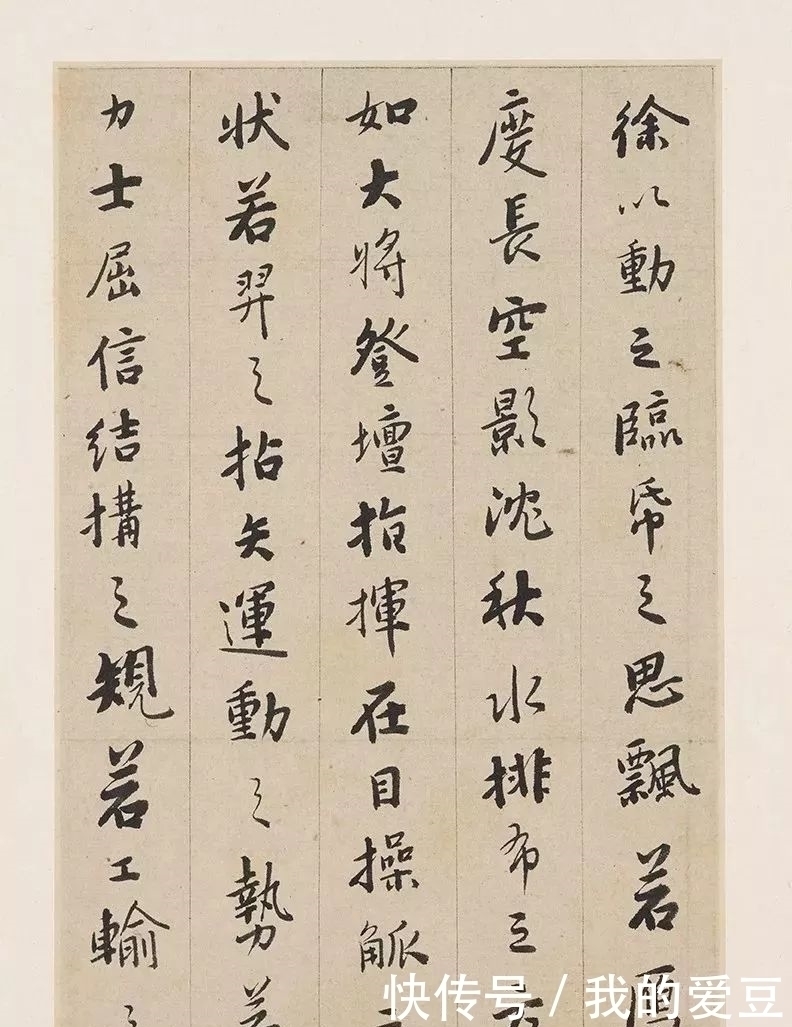 徐以動之臨帋之思飄若雁
度長空影沈秋水排布之
如大將登壇指揮在目操觚
狀若羿之拈矢運動之勢若
力士屈信結搆之規若工輸之
快传号/我的爱豆